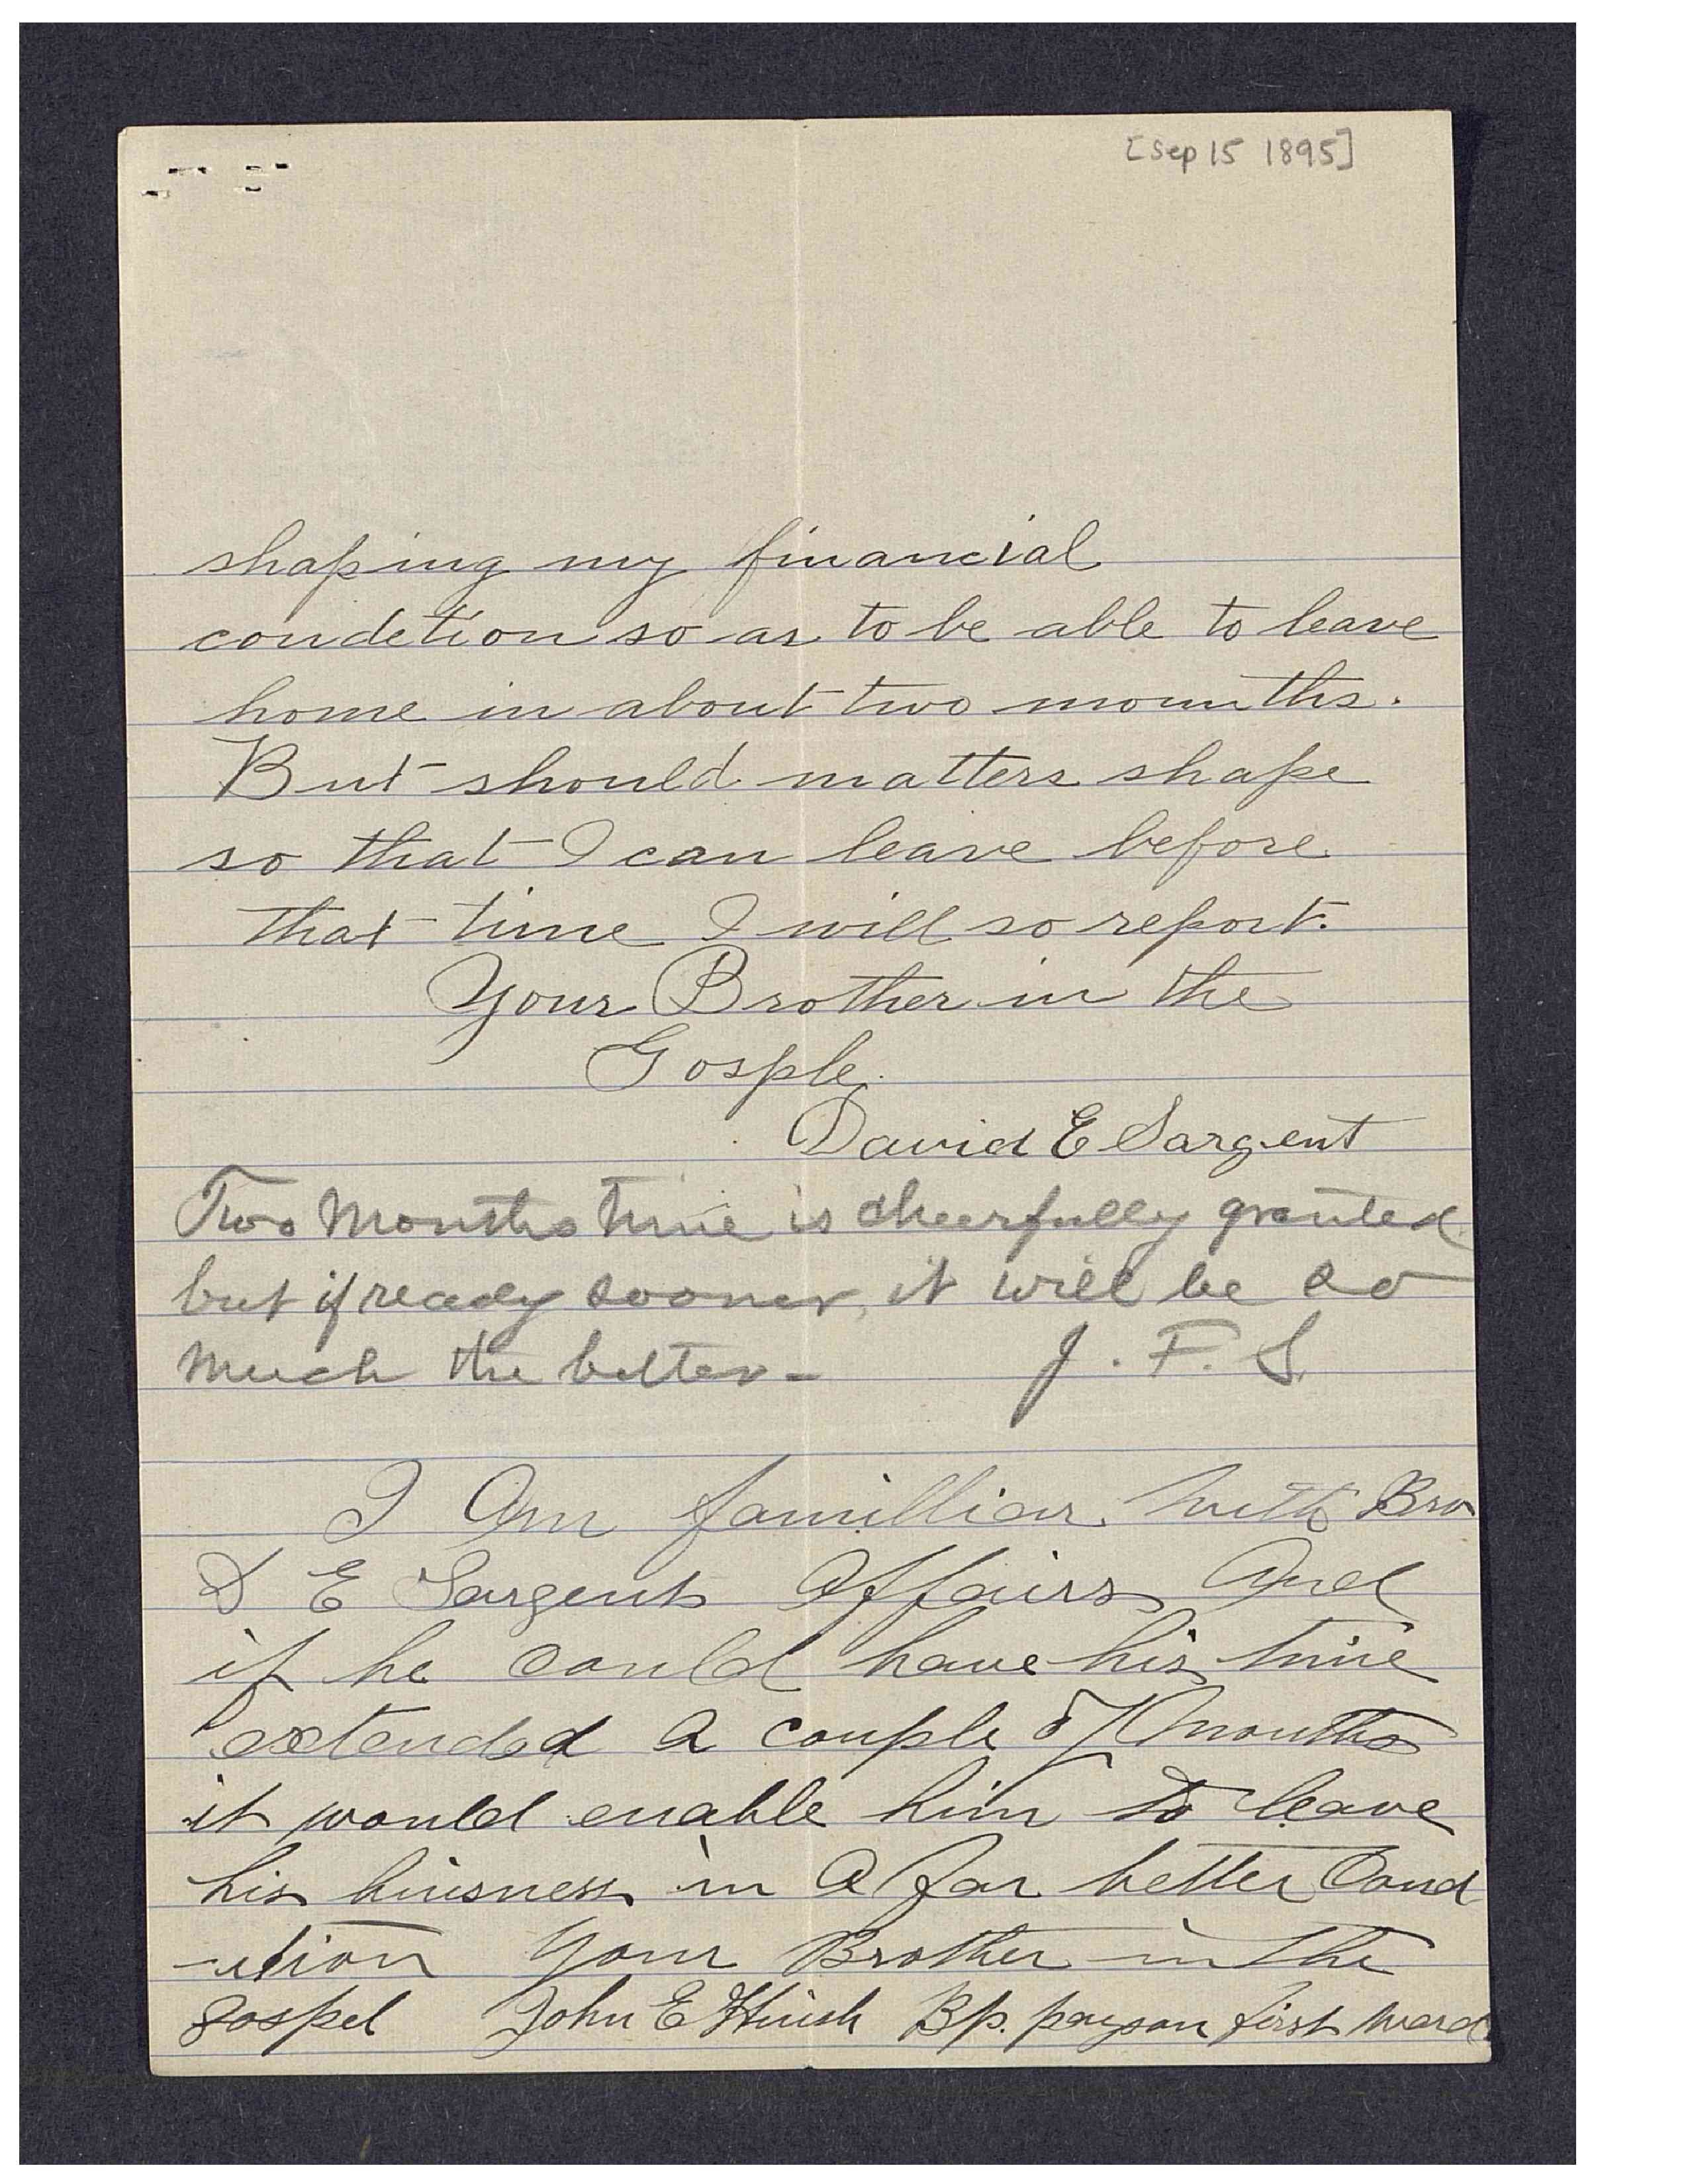 [Sep 15 1895]
shaping my financial
condetion so as to be able to leave
home in about two mounths.
But should matters shape
so that I can leave before
that time I will so report.
Your Brother in the
Gosple.
David E Sargent
Two Months time is cheerfully granted
but if ready sooner, it will be so
much the better_
J. F. S.
I Am familliar with Bro
D E Sargents Affairs And
if he could have his time
extended A couple of months
it would enable him to leave
his buisness in A far better Cond
-ition Your Brother in the
gospel John E Huish Bp. payson first ward